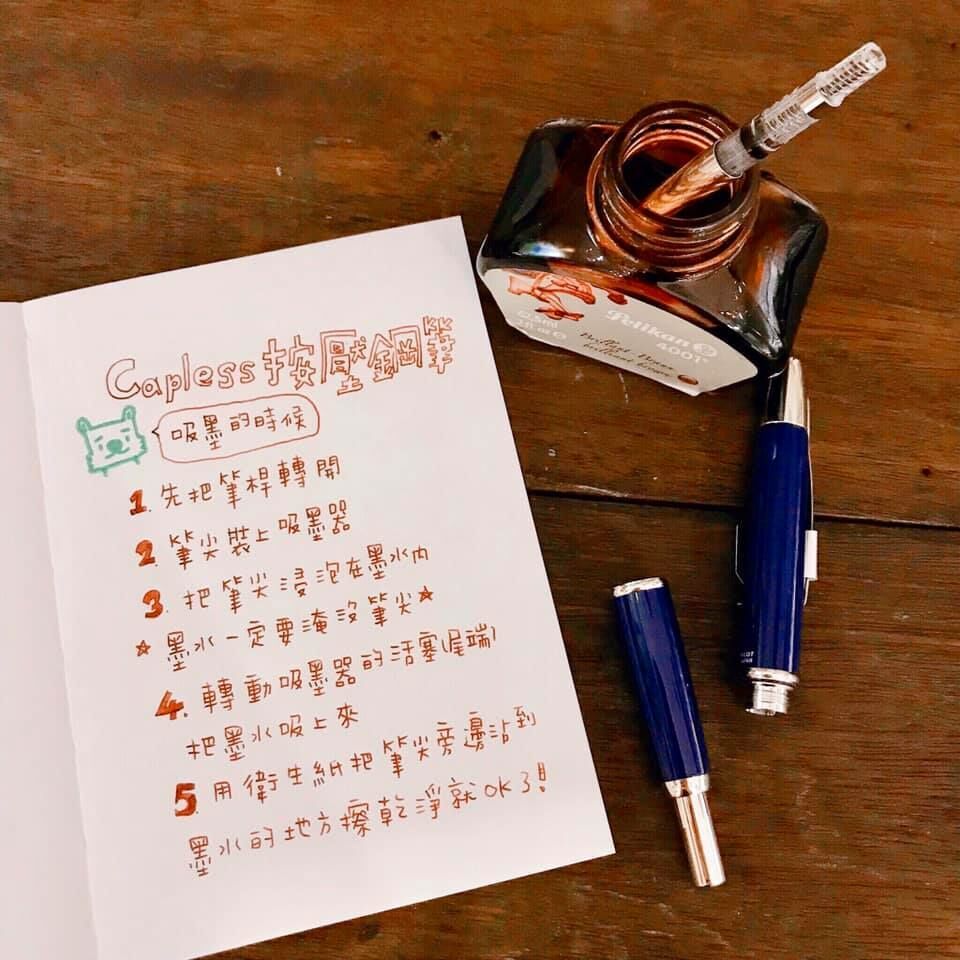 Capless按壓鋼筆
吸墨的時候
1. 先把筆桿轉開
2. 筆尖裝上吸墨器
3. 把筆尖浸泡在墨水內
☆墨水一定要淹沒筆尖☆
4. 轉動吸墨器的活塞(尾端)
把墨水吸上來
5. 用衛生紙把筆尖旁邊沾到
墨水的地方擦乾淨就OK了!
62.5ml
Pelikan
4001®
Brillant-Braun
brilliant brown